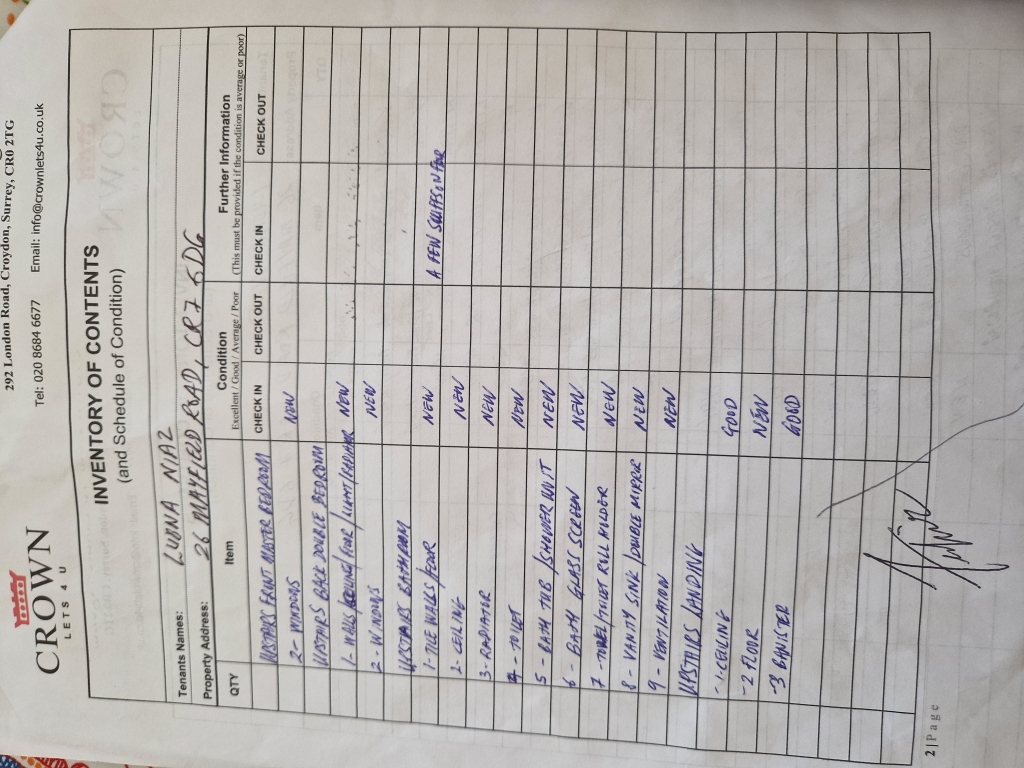 CROWN
LETS 4 U
292 London Road, Croydon, Surrey, CR0 2TG
Tel: 020 8684 6677 Email: info@crownlets4u.co.uk
INVENTORY OF CONTENTS
(and Schedule of Condition)
Tenants Names: LUBNA NIAZ
Property Address: 26 MAYFIELD ROAD, CR7 6DG
QTY Item Condition Further Information
Excellent / Good / Average / Poor (This must be provided if the condition is average or poor)
CHECK IN CHECK OUT CHECK IN CHECK OUT
UPSTAIRS FRONT MASTER BEDROOM
2- WINDOWS NEW
UPSTAIRS BACK DOUBLE BEDROOM
1- WALLS/CEILING/FLOOR/LIGHT/RADIATOR NEW
2- WINDOWS NEW
UPSTAIRS BATHROOM
1- TILE WALLS/FLOOR NEW A FEW SCUFFS ON FLOOR
2- CEILING NEW
3- RADIATOR NEW
4- TOILET NEW
5- BATH TUB/SHOWER UNIT NEW
6- BATH GLASS SCREEN NEW
7- TOWEL/TOILET ROLL HOLDER NEW
8- VANITY SINK/DOUBLE MIRROR NEW
9- VENTILATION NEW
UPSTAIRS LANDING
-1 CEILING GOOD
-2 FLOOR NEW
-3 BANISTER GOOD
2 | Page